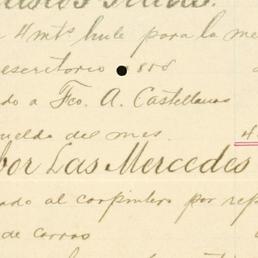 4 mts hule para la me
escritorio 888
ado a Fco. A. Castellanos
sueldo del mes. 4
bor Las Mercedes
ado al carpintero por rep
de carros